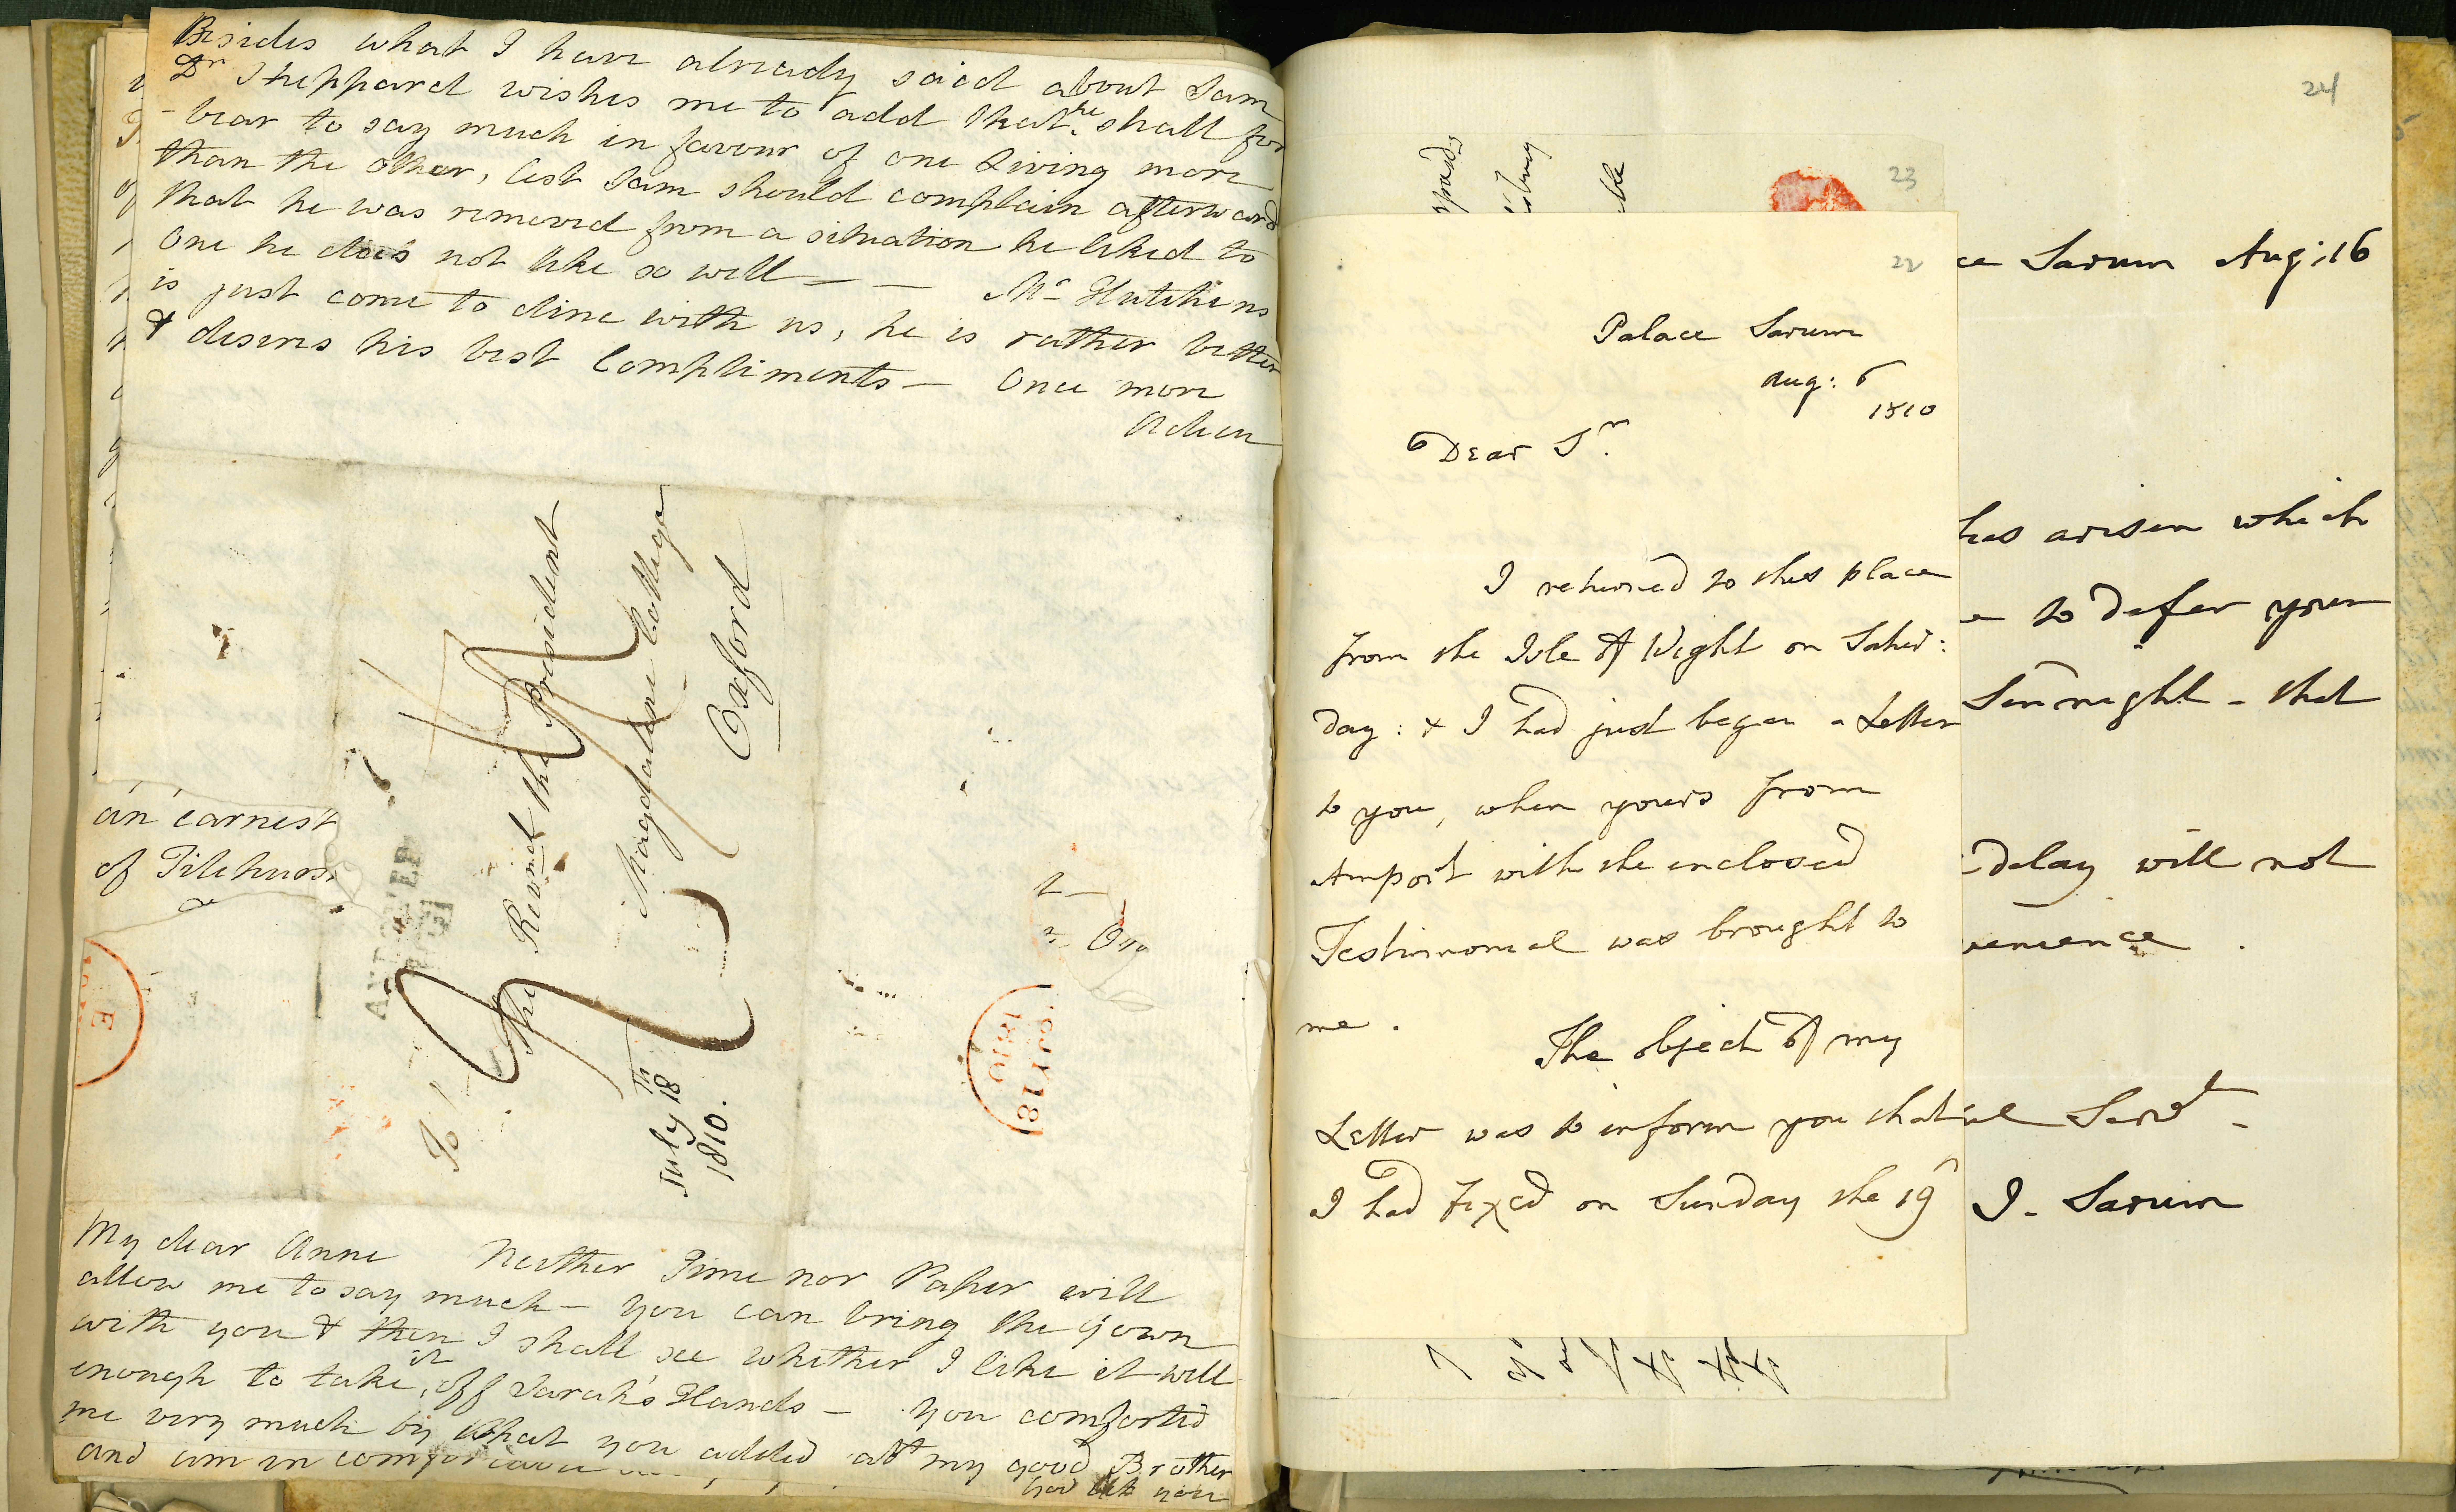 Besides what I have already said about Sam
Dr Sheppard wishes me to add that he shall for
-bear to say much in favour of one Living more
than the other, lest Sam should complain afterwards
that he was removed from a situation he liked to
One he does not like so well — — Mr Hutchins
is just come to dine with us, he is rather better
& desires his best Compliments — Once more
Adieu
The Revnd the President
Magdalene College
Oxford
July 18th
1810.
an earnest
of Tilehurst
ANDOVER
JY 18
1810
E
My dear Anne Neither Time nor Paper will
allow me to say much — you can bring the Gown
with you & then I shall see whether I like it well
enough to take it off Sarah's Hands — You comforted
me very much by what you added abt my good Brother
and am in
24
23
22
Palace Sarum
Aug: 6
1810
Dear Sr.
I returned to this place
from the Isle of Wight on Satur:
day: & I had just began a Letter
to you, when yours from
Amport with the enclosed
Testimonial was brought to
me.
The object of my
Letter was to inform you that
I had fixed on Sunday the 19
ce Sarum Aug: 16
has arisen which
to defer your
Sennight - that
delay will not
venience.
ul Servt -
J. Sarum